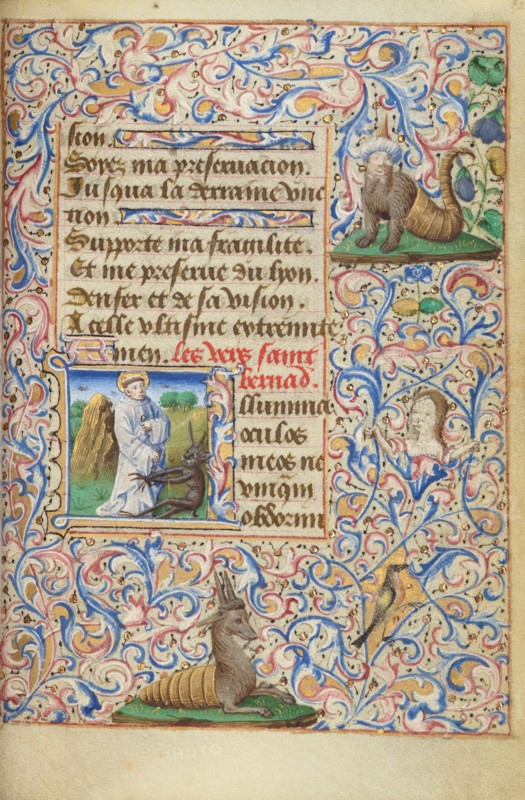 sion.
Soyez ma preseruacion.
Jusqua la derraine vnc
tion
Supporte ma fragilite.
Et me preserue du lyon.
Denfer et de sa vision.
A celle vltisme extremite
Amen. les vers saint
bernad.
Illumina
oculos
meos ne
vnq̃m
obdorm
PHOTO